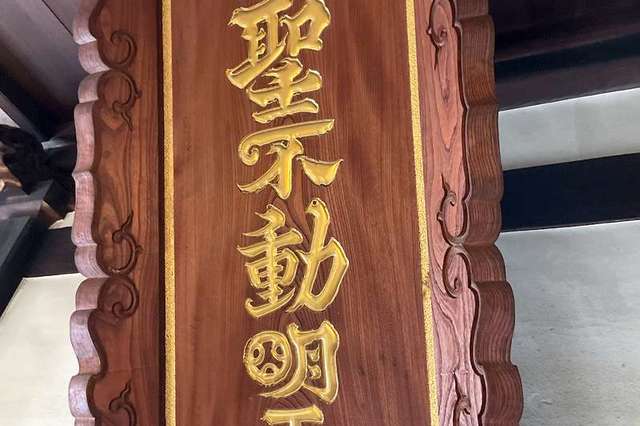 聖不動明王